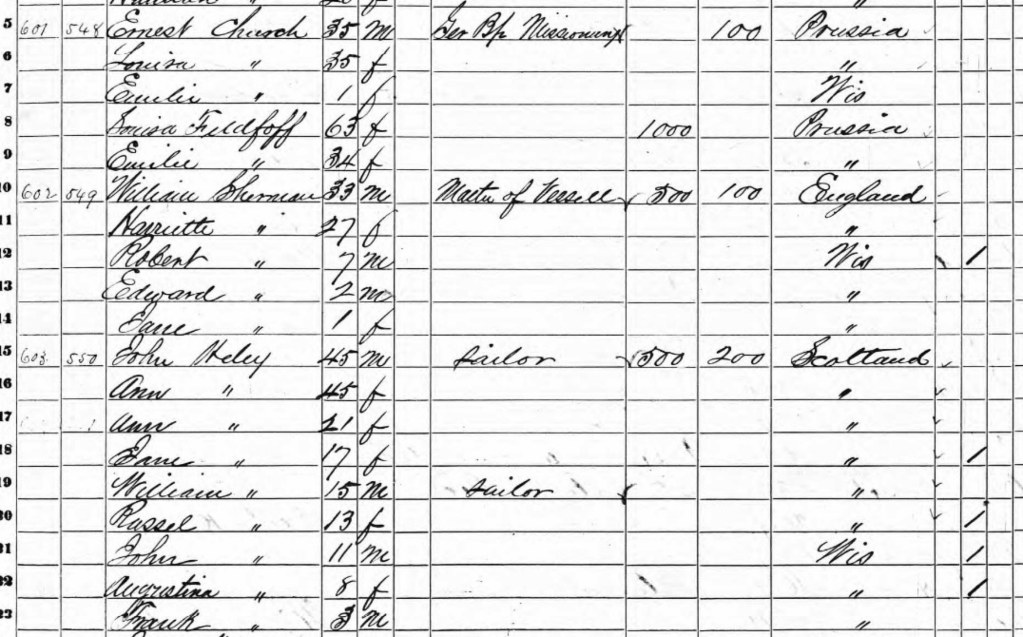 5 601 548 Ernest Church 35 m Ger Bp Missionary 100 Prussia
6 Louisa " 35 f "
7 Emilie " 1 f Wis
8 Louisa Feldfoff 63 f 1000 Prussia
9 Emilie " 34 f "
10 602 549 William Sherman 33 m Master of Vessell 500 100 England
11 Harriette " 27 f "
12 Robert " 7 m Wis 1
13 Edward " 2 m "
14 Jane " 1 f "
15 603 550 John Heley 45 m Sailor 500 200 Scotland
16 Ann " 45 f "
17 Ann " 21 f "
18 Jane " 17 f " 1
19 William " 15 m Sailor "
20 Russel " 13 f " 1
21 John " 11 m Wis 1
22 Augustina " 8 f " 1
23 Frank " 3 m "